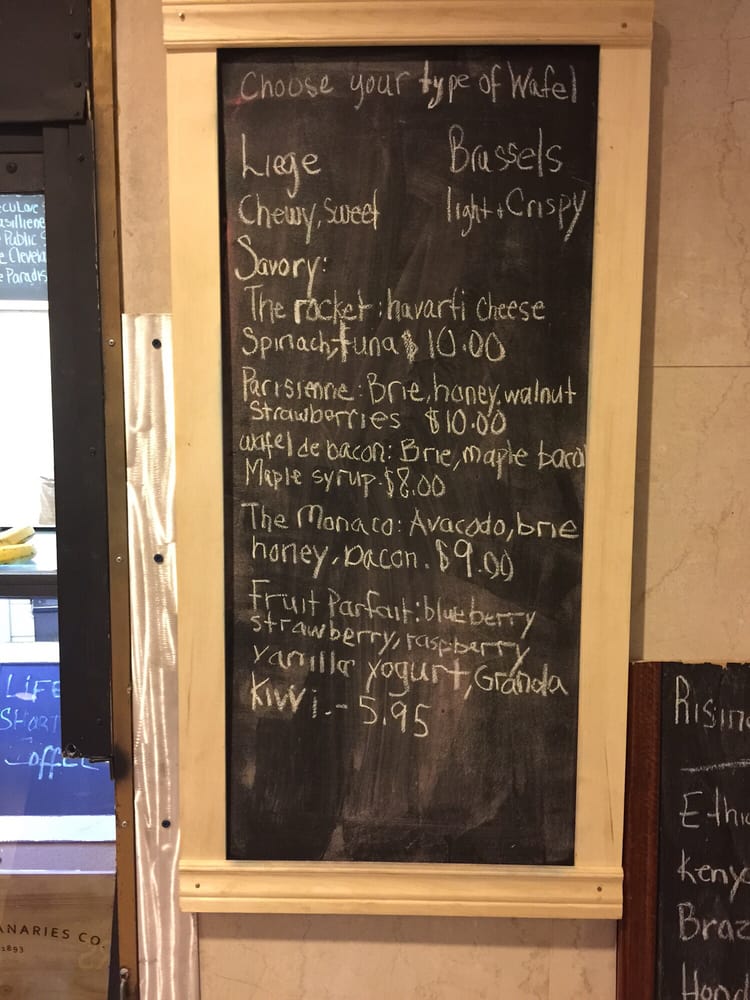 Choose your type of Wafel
Liege Brussels
Chewy, Sweet light + Crispy
Savory:
The rocket: havarti cheese
Spinach, tuna $10.00
Parisienne: Brie, honey, walnut
Strawberries $10.00
wafel de bacon: Brie, maple bacon
Maple syrup. $8.00
The Monaco: Avacodo, brie
honey, bacon. $9.00
Fruit Parfait: blueberry
strawberry, raspberry
vanilla yogurt, Granola
Kiwi. - 5.95
Public
Clevela
Paradis
LIFE
SHORT
COFFEE
ANARIES CO
1893
Risin
Ethi
Keny
Braz
Hond